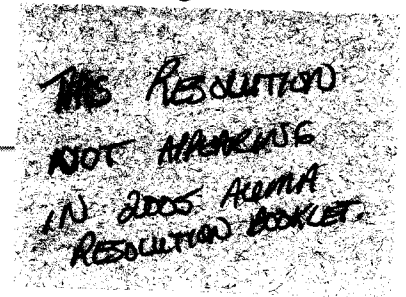 THIS RESOLUTION
NOT APPEARING
IN 2005 AUMA
RESOLUTION BOOKLET.